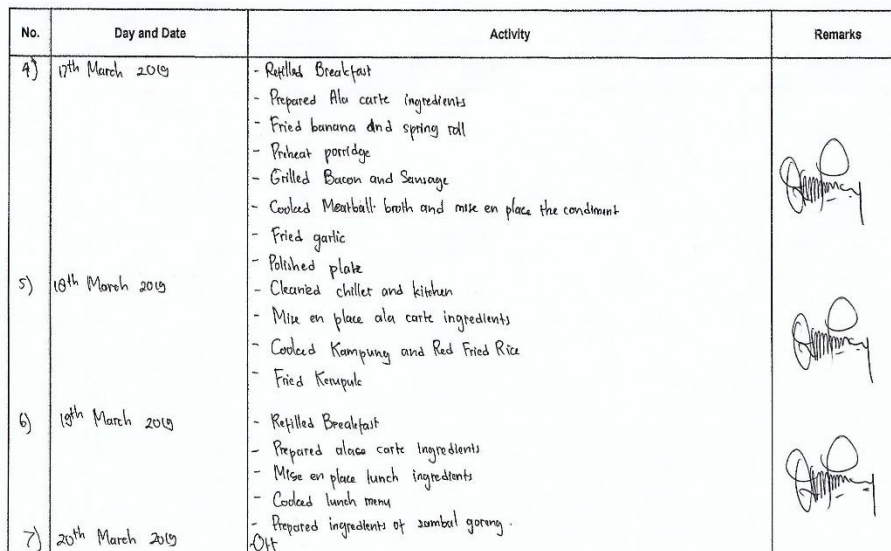 No. Day and Date Activity Remarks
4) 17th March 2019 - Refilled Breakfast
- Prepared Ala carte ingredients
- Fried banana and spring roll
- Preheat porridge
- Grilled Bacon and Sausage
- Cooked Meatball broth and mise en place the condiment
- Fried garlic
- Polished plate
5) 18th March 2019 - Cleanied chiller and kitchen
- Mise en place ala carte ingredients
- Cooked Kampung and Red Fried Rice
- Fried Kerupuk
6) 19th March 2019 - Refilled Breakfast
- Prepared alaca carte ingredients
- Mise en place lunch ingredients
- Cooked lunch menu
- Prepared ingredients of sambal goreng.
7) 20th March 2019 -Off